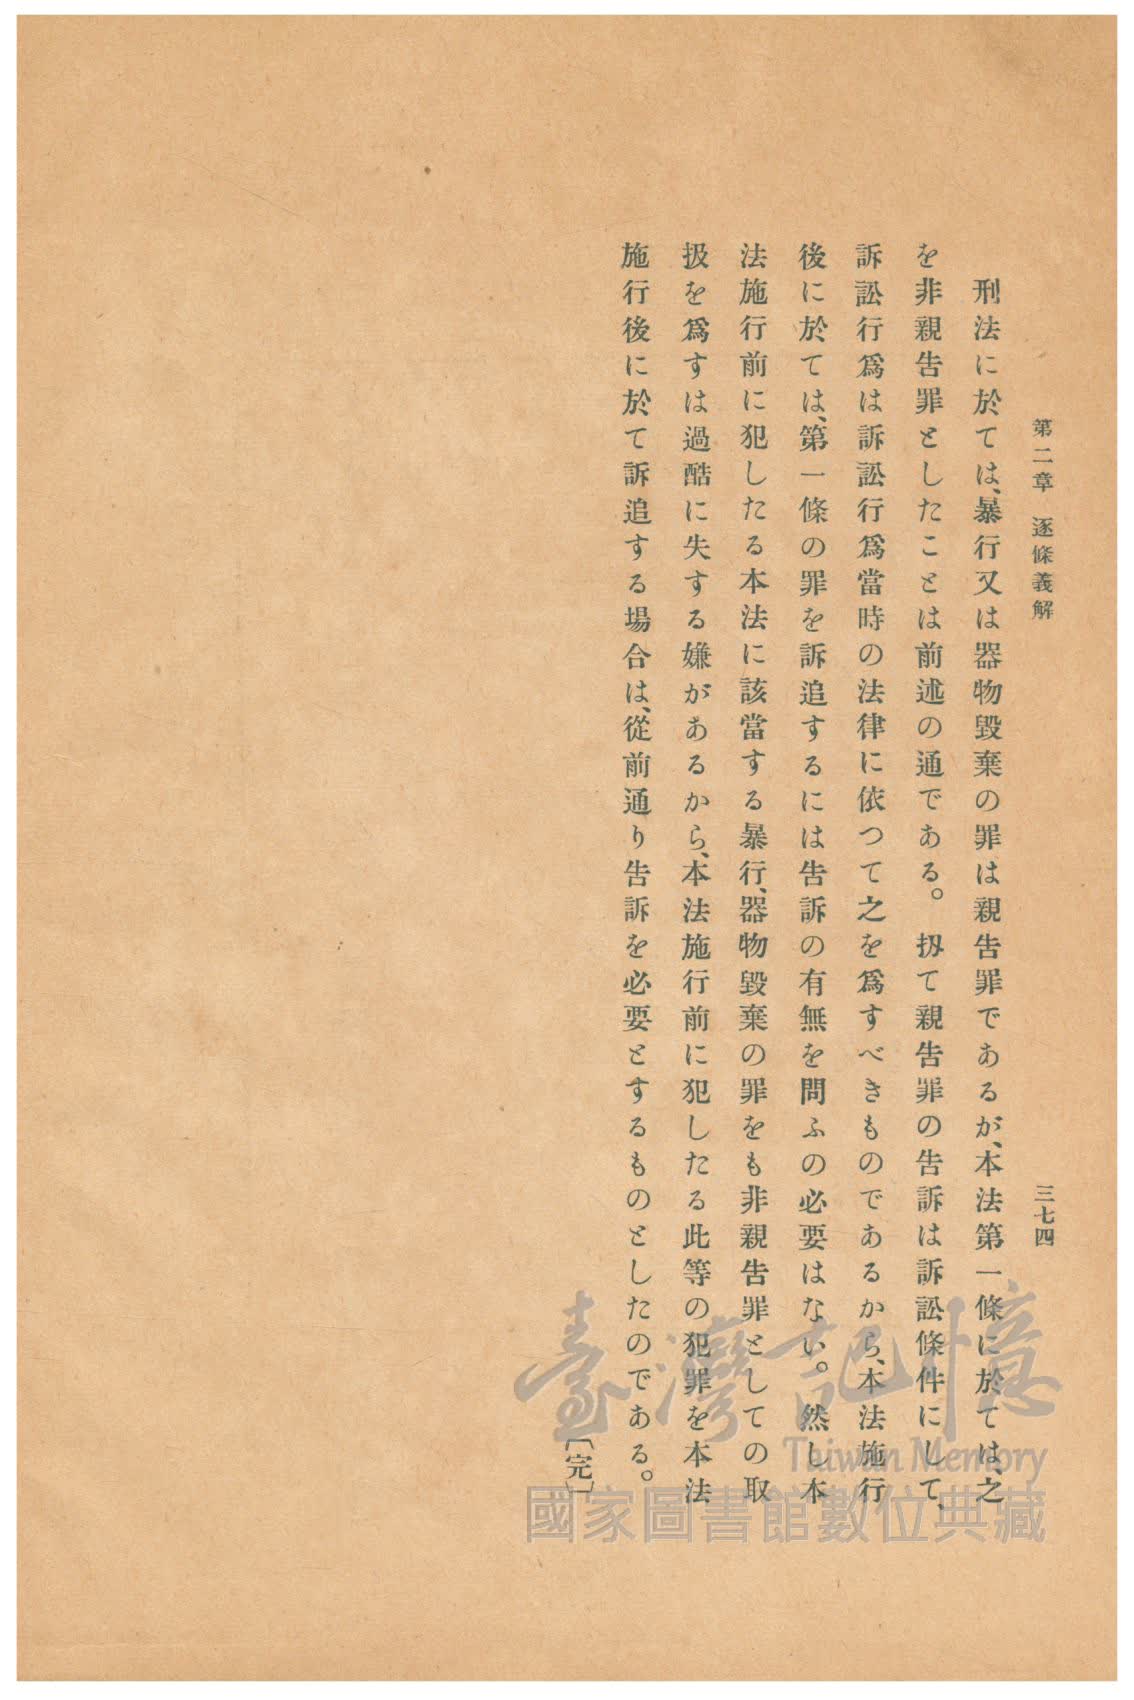 第二章　逐條義解
三七四
刑法に於ては、暴行又は器物毀棄の罪は親告罪であるが、本法第一條に於ては、之
を非親告罪としたことは前述の通である。扨て親告罪の告訴は訴訟條件にして、
訴訟行爲は訴訟行爲當時の法律に依つて之を爲すべきものであるから、本法施行
後に於ては、第一條の罪を訴追するには告訴の有無を問ふの必要はない。然し本
法施行前に犯したる本法に該當する暴行、器物毀棄の罪をも非親告罪としての取
扱を爲すは過酷に失する嫌があるから、本法施行前に犯したる此等の犯罪を本法
施行後に於て訴追する場合は、從前通り告訴を必要とするものとしたのである。
〔完〕
臺灣記憶
Taiwan Memory
國家圖書館數位典藏